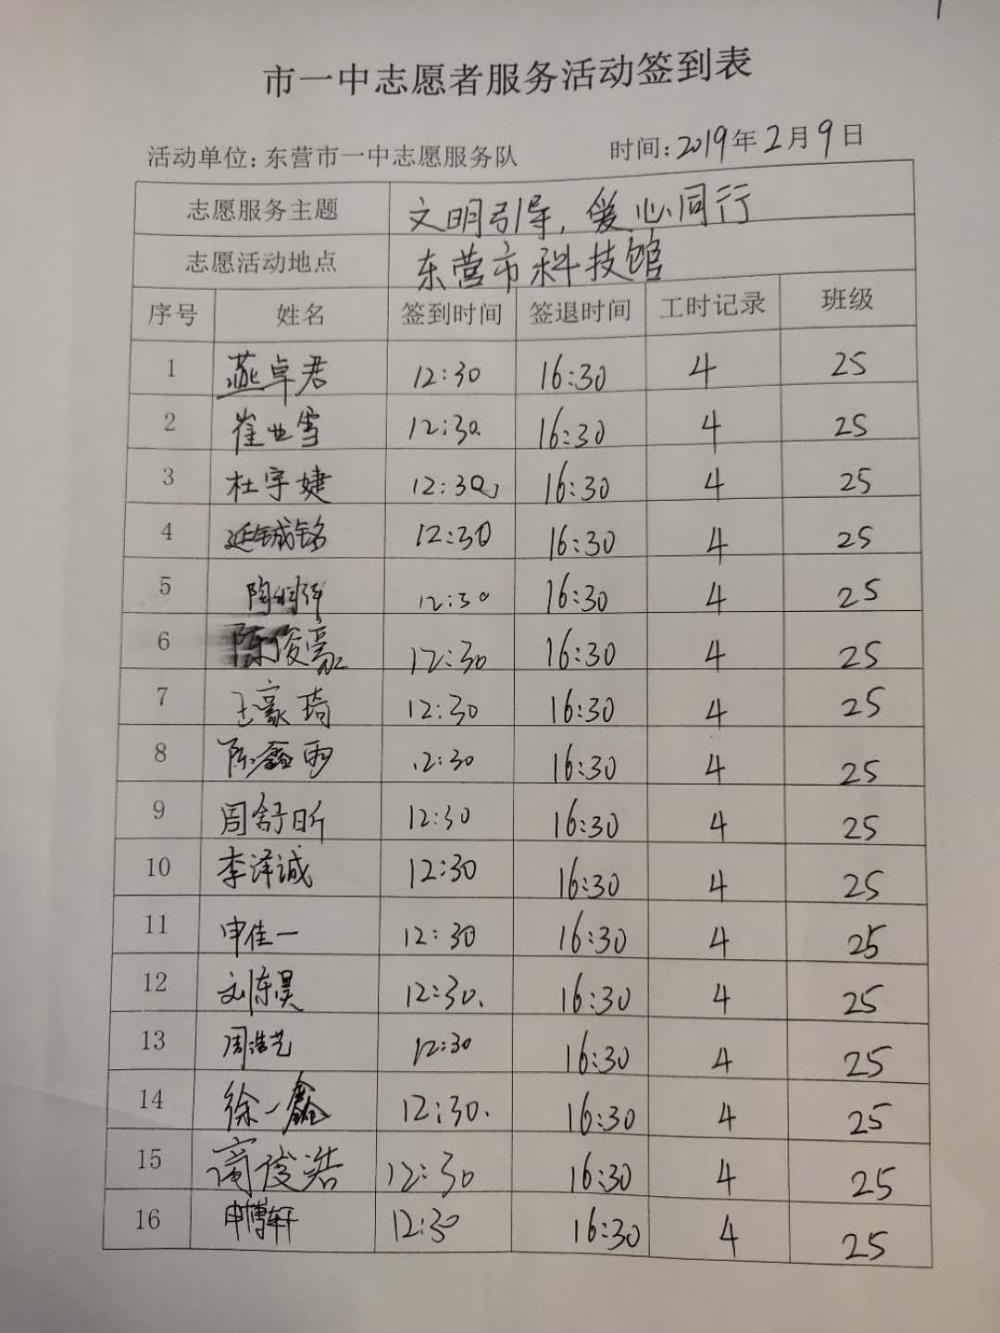 市一中志愿者服务活动签到表
活动单位：东营市一中志愿服务队 时间：2019年2月9日
志愿服务主题 文明引导，爱心同行
志愿活动地点 东营市科技馆
序号 姓名 签到时间 签退时间 工时记录 班级
1 燕卓君 12:30 16:30 4 25
2 崔业雪 12:30. 16:30 4 25
3 杜宇婕 12:30 16:30 4 25
4 延铖铭 12:30 16:30 4 25
5 12:30 16:30 4 25
6 陈俊豪 12:30 16:30 4 25
7 王豪琦 12:30 16:30 4 25
8 陈鑫雨 12:30 16:30 4 25
9 周舒昕 12:30 16:30 4 25
10 李泽诚 12:30 16:30 4 25
11 申佳一 12:30 16:30 4 25
12 刘东昊 12:30. 16:30 4 25
13 周浩艺 12:30 16:30 4 25
14 徐一鑫 12:30. 16:30 4 25
15 高俊浩 12:30 16:30 4 25
16 申博轩 12:30 16:30 4 25